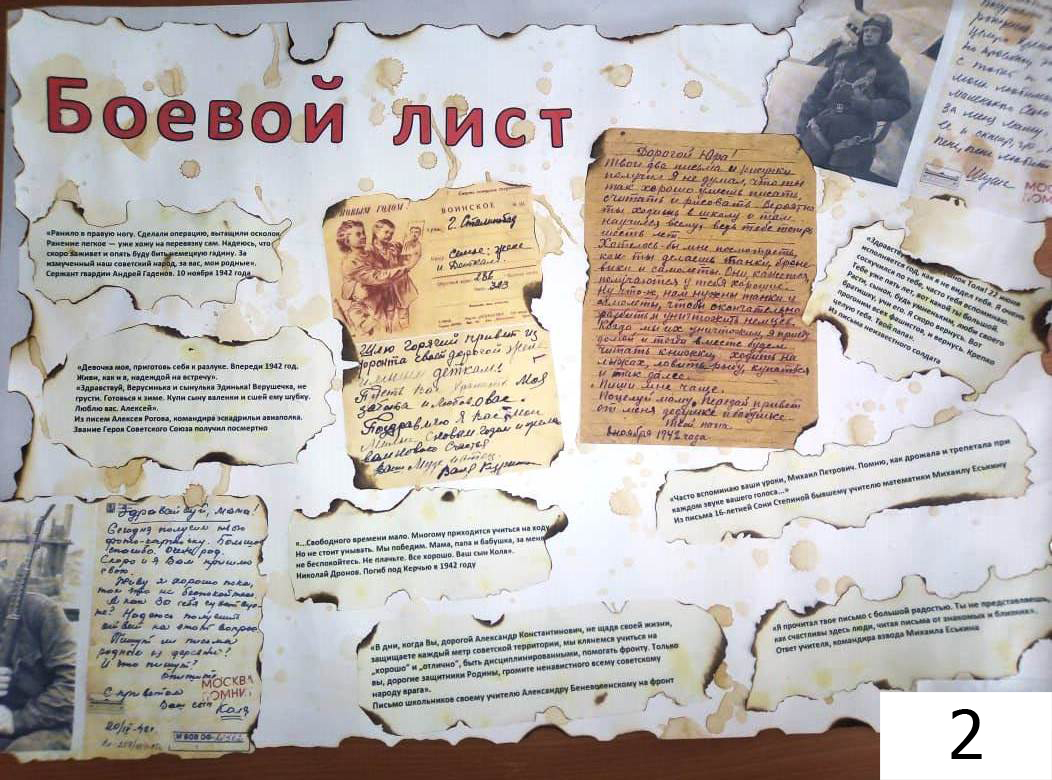 Боевой лист
«Ранило в правую ногу. Сделали операцию, вытащили осколок.
Ранение легкое — уже хожу на перевязку сам. Надеюсь, что
скоро заживет и опять буду бить немецкую гадину. За
измученный наш советский народ, за вас, мои родные».
Сержант гвардии Андрей Гаденов. 10 ноября 1942 года
«Девочка моя, приготовь себя к разлуке. Впереди 1942 год.
Живи, как и я, надеждой на встречу».
«Здравствуй, Верусинька и сынулька Эдинька! Верушечка, не
грусти. Готовься к зиме. Купи сыну валенки и сшей ему шубку.
Люблю вас. Алексей».
Из писем Алексея Рогова, командира эскадрильи авиаполка.
Звание Героя Советского Союза получил посмертно
НОВЫМ ГОДОМ!
ВОИНСКОЕ
г. Сталинабад
286
Шлю горячий привет из
фронта своей дорогой жене
и деткам!
Моя
забота и любовь о вас.
Поздравляю я Вас мои
Милые с новым годом и желаю
вам нового счастья
Дорогой Юра!
Твои два письма и рисунки
получил. Я не думал, что ты
так хорошо умеешь писать,
считать и рисовать. Вероятно
ты ходишь в школу и там
научился всему ведь тебе теперь
шесть лет.
Хотелось бы мне посмотреть,
как ты делаешь танки, броне
вики и самолеты. Они кажется
получаются у тебя хорошие.
нам нужны танки и
самолеты, чтобы окончательно
разбить и уничтожить немцев.
Когда мы их уничтожим, я приеду
домой и тогда вместе будем
читать книжку, ходить на
лыжах, ловить рыбу купаться
и так далее.
Пиши мне чаще.
Поцелуй маму. Передай привет
от меня дедушке и бабушке.
Твой папа.
ноября 1942 года
«Здравствуй, мой сынок Толя! 22 июня
исполняется год, как не видел тебя. Я очень
соскучился по тебе, часто тебя вспоминаю
Тебе уже пять лет, вот какой ты большой.
Расти, сынок, будь умненьким, люби своего
братишку, учи его. Я скоро вернусь. Вот
прогоним всех фашистов, и вернусь. Крепко
целую тебя. Твой папа».
Из письма неизвестного солдата
«Часто вспоминаю ваши уроки, Михаил Петрович. Помню, как дрожала и трепетала при
каждом звуке вашего голоса...»
Из письма 16-летней Сони Степиной бывшему учителю математики Михаилу Еськину
«...Свободного времени мало. Многому приходится учиться на ходу.
Но не стоит унывать. Мы победим. Мама, папа и бабушка, за меня
не беспокойтесь. Не плачьте. Все хорошо. Ваш сын Коля».
Николай Дронов. Погиб под Керчью в 1942 году
Здравствуй, мама!
Сегодня получил твою
фото-карточку. Большое
спасибо. Очень рад.
Скоро и я Вам пришлю
свою.
Живу я хорошо пока,
так что не беспокойтесь.
А как Вы себя чувствуе-
те? Надеюсь получить
ответ на этот вопрос
Пишут ли письма
родные из деревни?
И что пишут?
С приветом
Ваш сын
Коля
МОСКВА
ПОМНИТ
«В дни, когда Вы, дорогой Александр Константинович, не щадя своей жизни,
защищаете каждый метр советской территории, мы клянемся учиться на
„хорошо" и „отлично", быть дисциплинированными, помогать фронту. Только
вы, дорогие защитники Родины, громите ненавистного всему советскому
народу врага».
Письмо школьников своему учителю Александру Беневоленскому на фронт
«Я прочитал твое письмо с большой радостью. Ты не представляешь,
как счастливы здесь люди, читая письма от знакомых и близких».
Ответ учителя, командира взвода Михаила Еськина
2